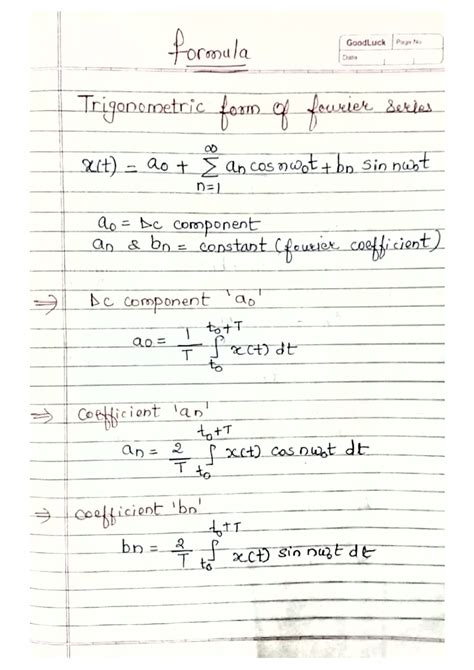 GoodLuck Page No.
Date
Formula
Trigonometric form of fourier series
x(t) = a₀ + ∞ Σ n=1 an cos nω₀t + bn sin nω₀t
a₀ = Dc component
an & bn = constant (fourier coefficient)
⇒ Dc component 'a₀'
a₀ = 1/T ∫ t₀ t₀+T x(t) dt
⇒ coefficient 'an'
an = 2/T ∫ t₀ t₀+T x(t) cos nω₀t dt
⇒ coefficient 'bn'
bn = 2/T ∫ t₀ t₀+T x(t) sin nω₀t dt